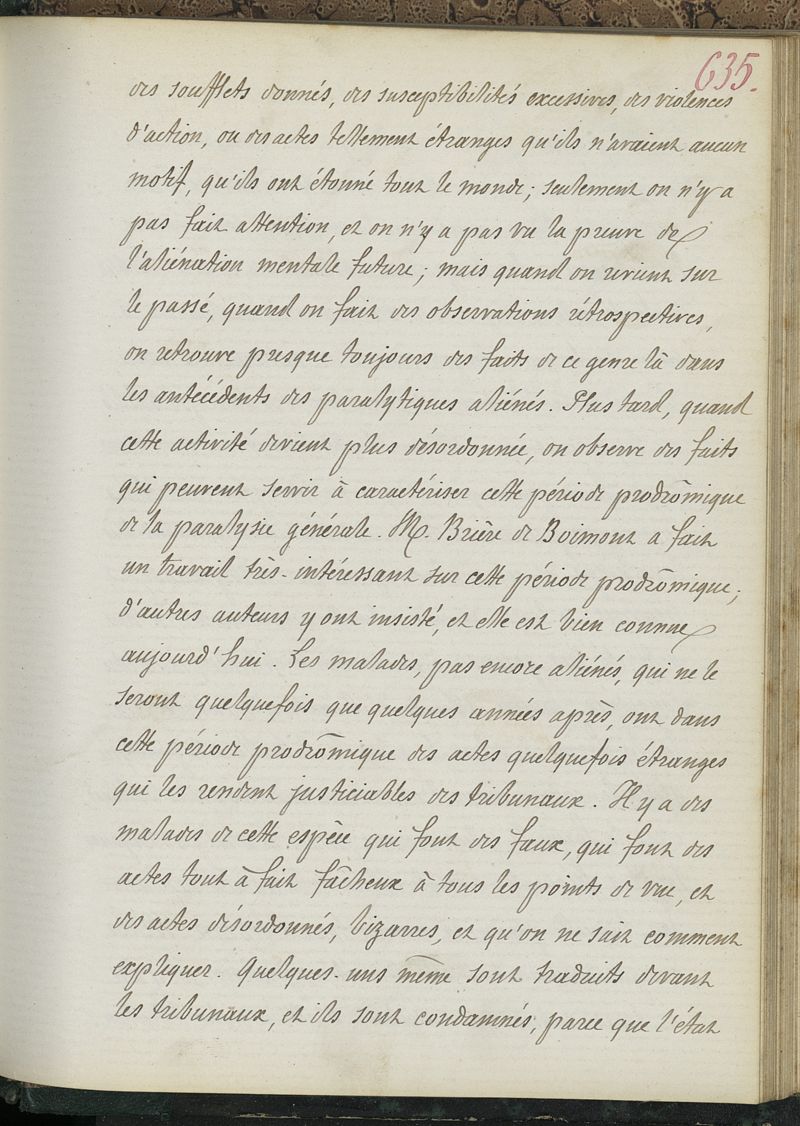 635.
des soufflets donnés, des susceptibilités excessives, des violences
d'action, ou des actes tellement étranges qu'ils n'avaient aucun
motif, qu'ils ont étonné tout le monde; seulement on n'y a
pas fait attention, et on n'y a pas vu la preuve de
l'aliénation mentale future; mais quand on revient sur
le passé, quand on fait des observations rétrospectives,
on retrouve presque toujours des faits de ce genre là dans
les antécédents des paralytiques aliénés. Plus tard, quand
cette activité devient plus désordonnée, on observe des faits
qui peuvent servir à caractériser cette période prodrômique
de la paralysie générale. M. Brière de Boimont a fait
un travail très-intéressant sur cette période prodrômique;
d'autres auteurs y ont insisté, et elle est bien connue
aujourd'hui. Les malades, pas encore aliénés, qui ne le
seront quelquefois que quelques années après, ont dans
cette période prodrômique des actes quelquefois étranges
qui les rendent justiciables des tribunaux. Il y a des
malades de cette espèce qui font des faux, qui font des
actes tout à fait fâcheux à tous les points de vue, et
des actes désordonnés, bizarres, et qu'on ne sait comment
expliquer. Quelques-uns même sont traduits devant
les tribunaux, et ils sont condamnés, parce que l'état